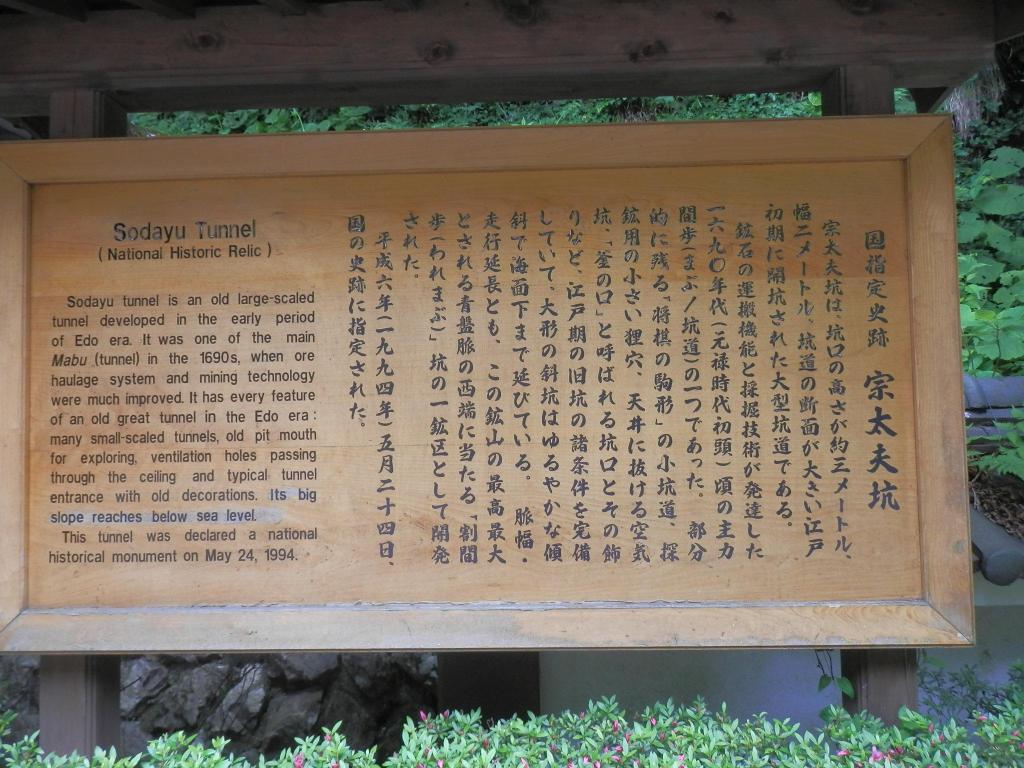 Sodayu Tunnel
( National Historic Relic )
Sodayu tunnel is an old large-scaled
tunnel developed in the early period
of Edo era. It was one of the main
Mabu (tunnel) in the 1690s, when ore
haulage system and mining technology
were much improved. It has every feature
of an old great tunnel in the Edo era :
many small-scaled tunnels, old pit mouth
for exploring, ventilation holes passing
through the ceiling and typical tunnel
entrance with old decorations. Its big
slope reaches below sea level.
This tunnel was declared a national
historical monument on May 24, 1994.
国指定史跡 宗太夫坑
宗太夫坑は、坑口の高さが約三メートル、
幅二メートル、坑道の断面が大きい江戸
初期に開坑された大型坑道である。
鉱石の運搬機能と採掘技術が発達した
一六九〇年代(元禄時代初頭)頃の主力
間歩(まぶ/坑道)の一つであった。 部分
的に残る「将棋の駒形」の小坑道、探
鉱用の小さい狸穴、天井に抜ける空気
坑、「釜の口」と呼ばれる坑口とその飾
りなど、江戸期の旧坑の諸条件を完備
していて、大形の斜坑はゆるやかな傾
斜で海面下まで延びている。 脈幅・
走行延長とも、この鉱山の最高最大
とされる青盤脈の西端に当たる「割間
歩(われまぶ)」坑の一鉱区として開発
された。
平成六年(一九九四年)五月二十四日、
国の史跡に指定された。